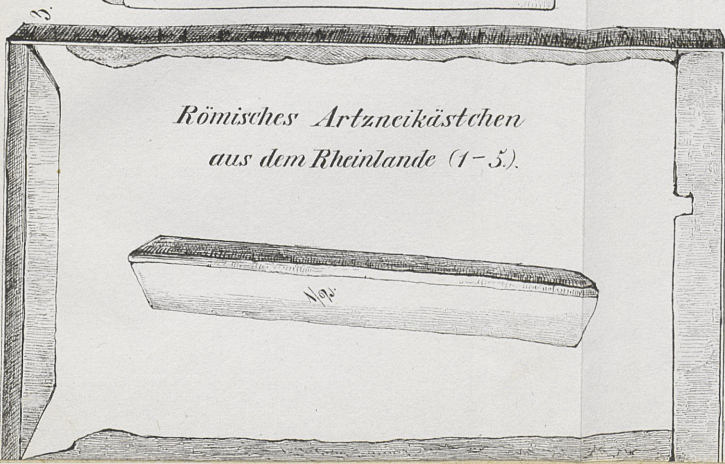 3.
Römisches Artzneikästchen
aus dem Rheinlande (1-5).